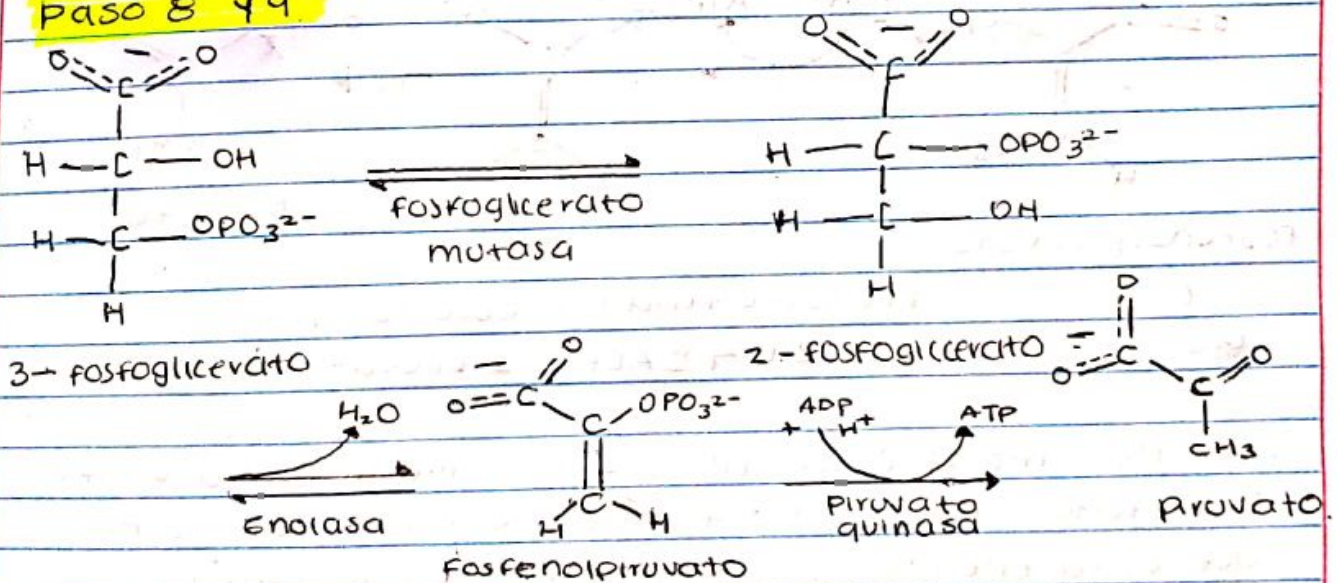 Paso 8 y 9
O O
C
H — C — OH
H — C — OPO₃²⁻
H
3- fosfoglicerato
fosfoglicerato
mutasa
O O
C
H — C — OPO₃²⁻
H — C — OH
H
2-fosfoglicerato
H₂O
Enolasa
O
O=C
C OPO₃²⁻
C
H H
Fosfenolpiruvato
ADP ATP
+ H⁺
Piruvato
quinasa
O
O C C O
CH₃
Piruvato.